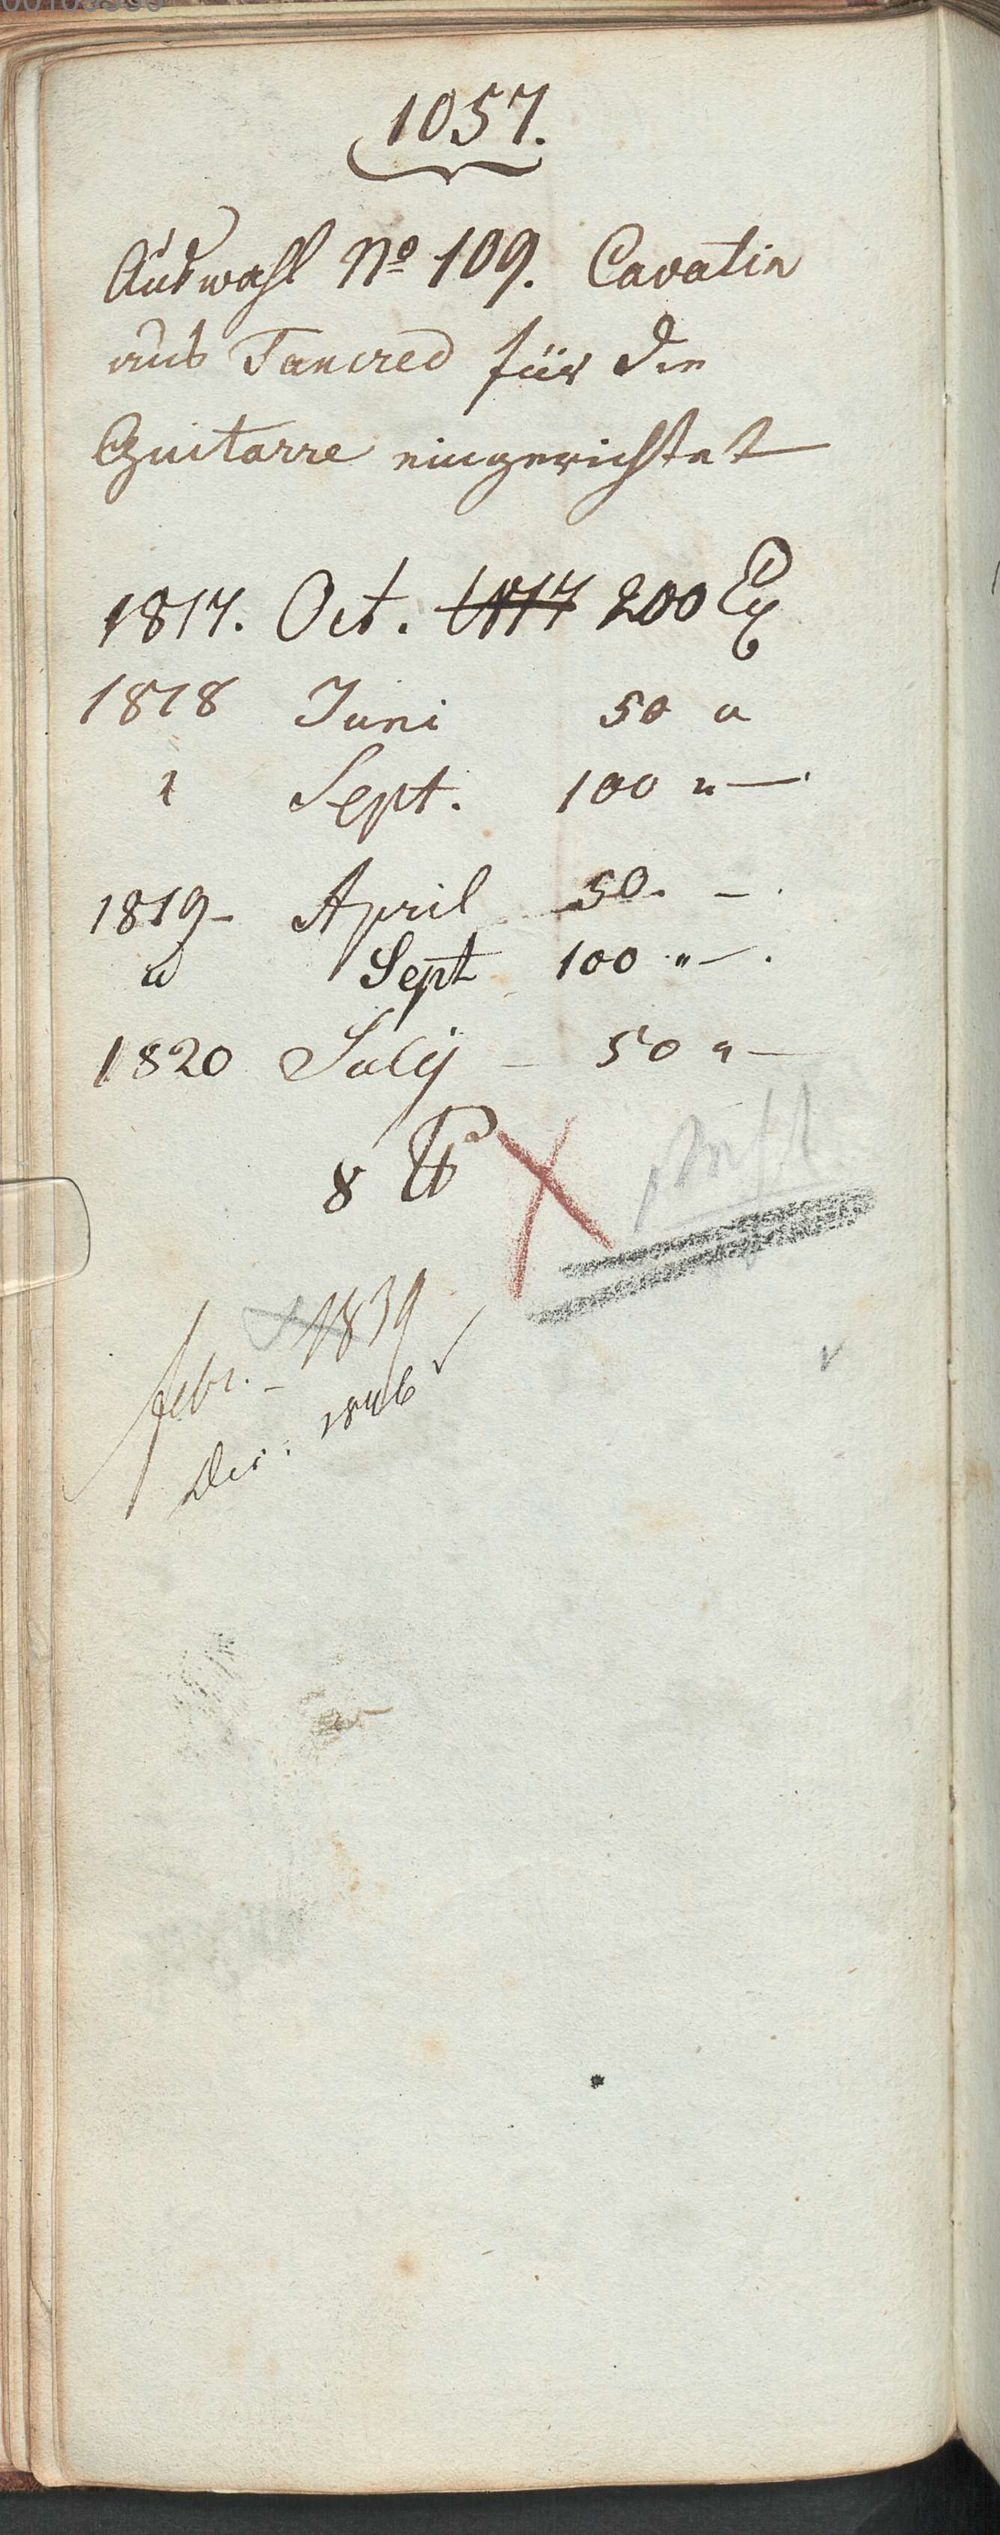 1057.
Auswahl No 109. Cavatin
aus Tancred für die
Guitarre eingerichtet
1817. Oct. 1817 200 Ex
1818 Juni 50 "
" Sept. 100 " —
1819 - April 50. - .
" Sept 100 " - .
1820 July - 50 " —
8
febr. - 1839
Dec. 1846